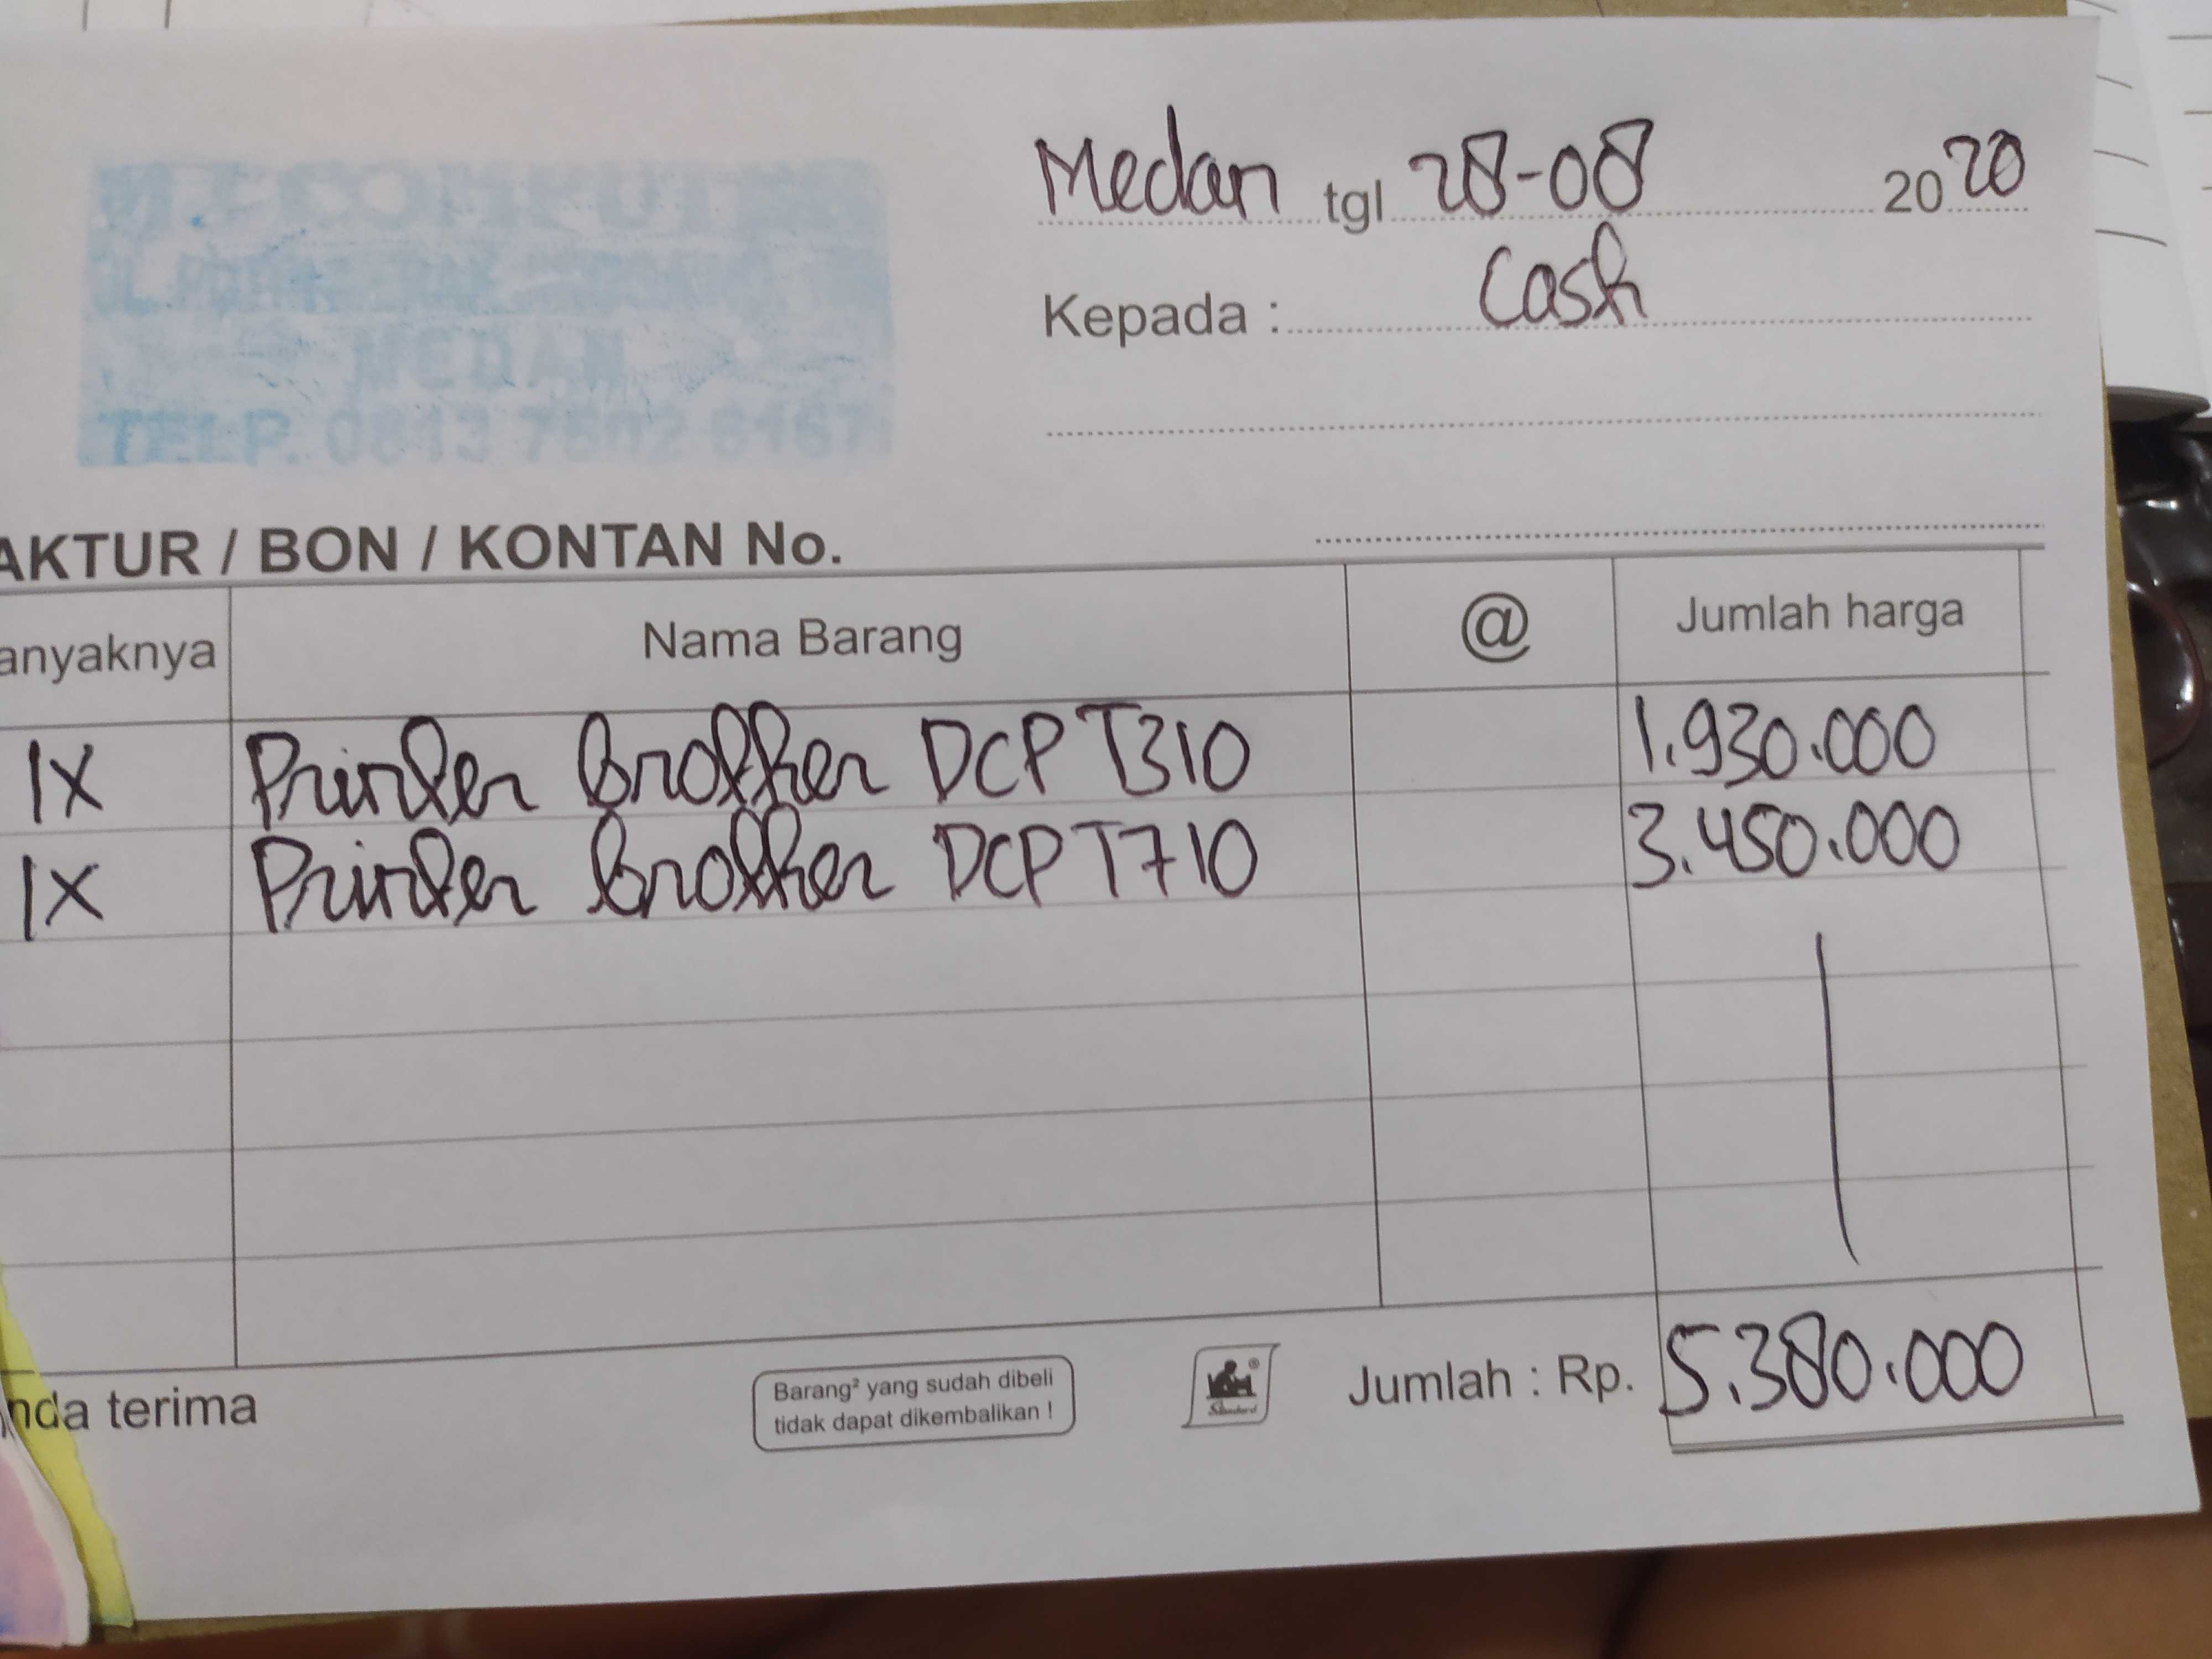 MEDAN
TELP. 0813 7502 6167
Medan tgl 28-08 2020
Kepada : Cash
AKTUR / BON / KONTAN No.
anyaknya Nama Barang @ Jumlah harga
1X Printer Brother DCP T310 1.930.000
1X Printer Brother DCP T710 3.450.000
nda terima
Barang² yang sudah dibeli
tidak dapat dikembalikan !
Jumlah : Rp. 5.380.000